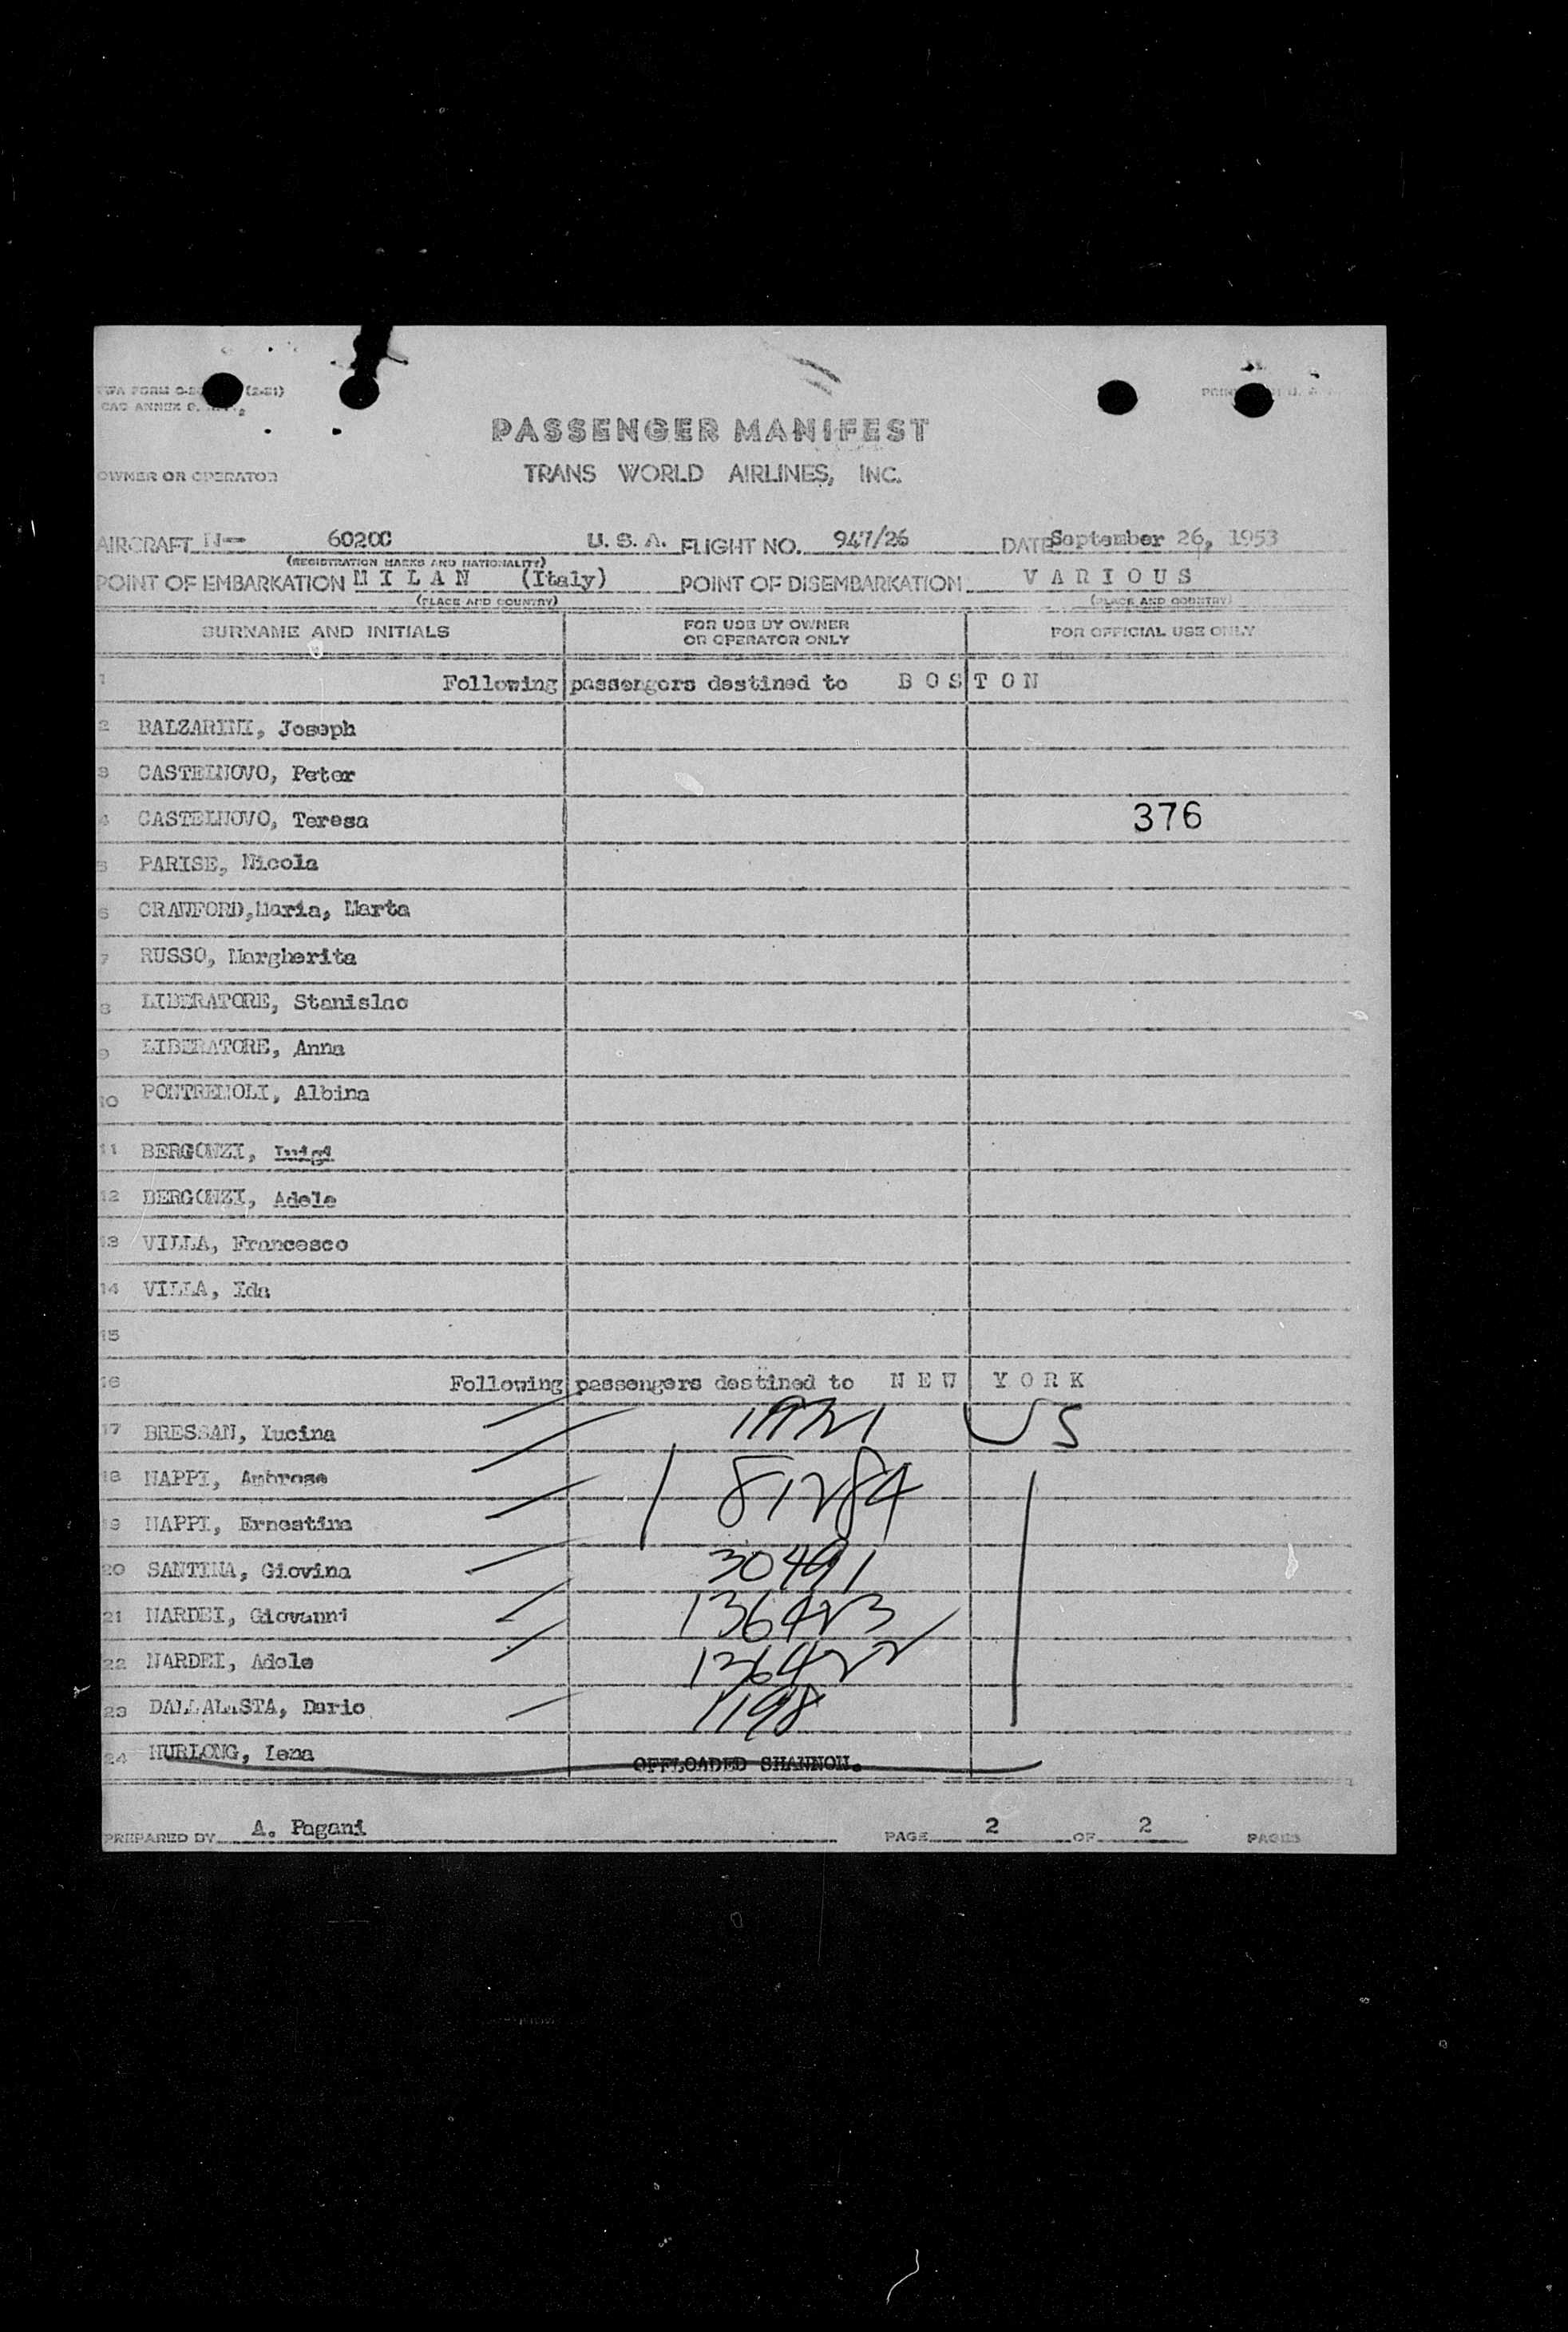 PASSENGER MANIFEST
OWNER OR OPERATOR TRANS WORLD AIRLINES, INC.
AIRCRAFT N- 6020C U. S. A. FLIGHT NO. 947/26 DATE September 26, 1953
(REGISTRATION MARKS AND NATIONALITY)
POINT OF EMBARKATION M I L A N (Italy) POINT OF DISEMBARKATION V A R I O U S
(PLACE AND COUNTRY) (PLACE AND COUNTRY)
SURNAME AND INITIALS FOR USE BY OWNER OR OPERATOR ONLY FOR OFFICIAL USE ONLY
1 Following passengers destined to B O S T O N
2 BALZARINI, Joseph
3 CASTELNOVO, Peter
4 CASTELNOVO, Teresa 376
5 PARISE, Nicola
6 CRAWFORD,Maria, Marta
7 RUSSO, Margherita
8 LIBERATORE, Stanislao
9 LIBERATORE, Anna
10 PONTREMOLI, Albina
11 BERGONZI, Luigi
12 BERGONZI, Adele
13 VILLA, Francesco
14 VILLA, Ida
15
16 Following passengers destined to N E W Y O R K
17 BRESSAN, Lucina US
18 NAPPI, Ambrose 81284
19 NAPPI, Ernestina
20 SANTINA, Giovina 30491
21 NARDEI, Giovanni 136423
22 NARDEI, Adele 136422
23 DALLALASTA, Dario 1198
24 HURLONG, Lena OFFLOADED SHANNON.
PREPARED BY A. Pagani PAGE 2 OF 2 PAGES